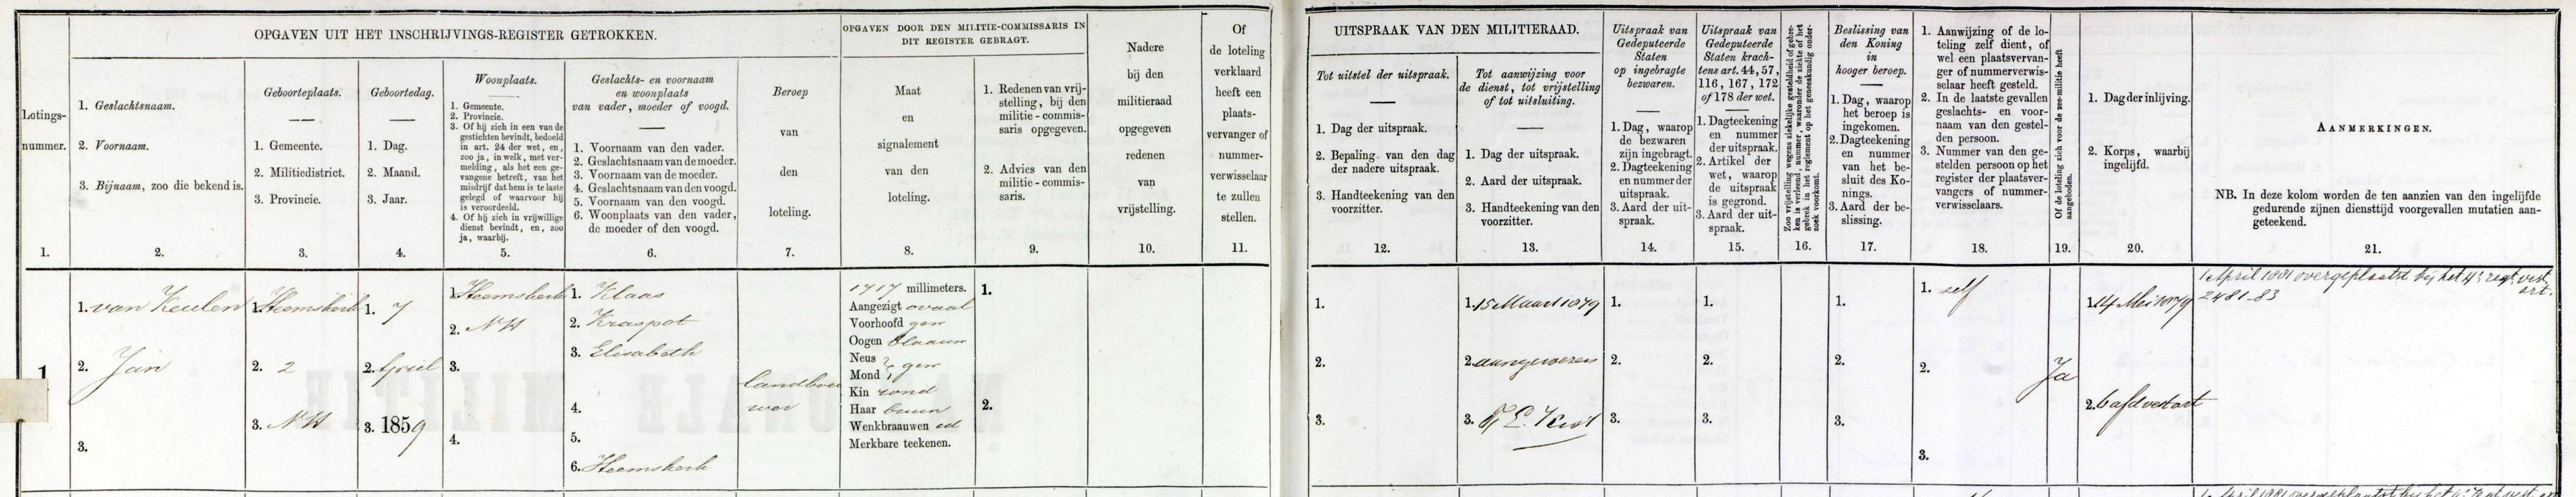 OPGAVEN UIT HET INSCHRIJVINGS-REGISTER GETROKKEN.
OPGAVEN DOOR DEN MILITIE-COMMISSARIS IN
DIT REGISTER GEBRAGT.
Lotings-
nummer.
1.
1. Geslachtsnaam.
2. Voornaam.
3. Bijnaam, zoo die bekend is.
2.
Geboorteplaats.
1. Gemeente.
2. Militiedistrict.
3. Provincie.
3.
Geboortedag.
1. Dag.
2. Maand.
3. Jaar.
4.
Woonplaats.
1. Gemeente.
2. Provincie.
3. Of hij zich in een van de
gestichten bevindt, bedoeld
in art. 24 der wet, en,
zoo ja, in welk, met ver-
melding, als het een ge-
vangene betreft, van het
misdrijf dat hem is te laste
gelegd of waarvoor hij
is veroordeeld.
4. Of hij zich in vrijwillige
dienst bevindt, en, zoo
ja, waarbij.
5.
Geslachts- en voornaam
en woonplaats
van vader, moeder of voogd.
1. Voornaam van den vader.
2. Geslachtsnaam van de moeder.
3. Voornaam van de moeder.
4. Geslachtsnaam van den voogd.
5. Voornaam van den voogd.
6. Woonplaats van den vader,
de moeder of den voogd.
6.
Beroep
van
den
loteling.
7.
Maat
en
signalement
van den
loteling.
8.
1. Redenen van vrij-
stelling, bij den
militie-commis-
saris opgegeven.
2. Advies van den
militie-commis-
saris.
9.
Nadere
bij den
militieraad
opgegeven
redenen
van
vrijstelling.
10.
Of
de loteling
verklaard
heeft een
plaats-
vervanger of
nummer-
verwisselaar
te zullen
stellen.
11.
UITSPRAAK VAN DEN MILITIERAAD.
Tot uitstel der uitspraak.
1. Dag der uitspraak.
2. Bepaling van den dag
der nadere uitspraak.
3. Handteekening van den
voorzitter.
12.
Tot aanwijzing voor
de dienst, tot vrijstelling
of tot uitsluiting.
1. Dag der uitspraak.
2. Aard der uitspraak.
3. Handteekening van den
voorzitter.
13.
Uitspraak van
Gedeputeerde
Staten
op ingebragte
bezwaren.
1. Dag, waarop
de bezwaren
zijn ingebragt.
2. Dagteekening
en nummer der
uitspraak.
3. Aard der uit-
spraak.
14.
Uitspraak van
Gedeputeerde
Staten krach-
tens art. 44, 57,
116, 167, 172
of 178 der wet.
1. Dagteekening
en nummer
der uitspraak.
2. Artikel der
wet, waarop
de uitspraak
is gegrond.
3. Aard der uit-
spraak.
15.
Zoo vrijstelling wegens ziekelijke gesteldheid of gebre-
ken is verleend, nummer, waaronder de ziekte of het
gebrek in het reglement op het geneeskundig onder-
zoek voorkomt.
16.
Beslissing van
den Koning
in
hooger beroep.
1. Dag, waarop
het beroep is
ingekomen.
2. Dagteekening
en nummer
van het be-
sluit des Ko-
nings.
3. Aard der be-
slissing.
17.
1. Aanwijzing of de lo-
teling zelf dient, of
wel een plaatsvervan-
ger of nummerverwis-
selaar heeft gesteld.
2. In de laatste gevallen
geslachts- en voor-
naam van den gestel-
den persoon.
3. Nummer van den ge-
stelden persoon op het
register der plaatsver-
vangers of nummer-
verwisselaars.
18.
Of de loteling zich voor de zee-militie heeft
aangeboden.
19.
1. Dag der inlijving.
2. Korps, waarbij
ingelijfd.
20.
AANMERKINGEN.
NB. In deze kolom worden de ten aanzien van den ingelijfde
gedurende zijnen diensttijd voorgevallen mutatien aan-
geteekend.
21.
1
1. van Keulen
2. Jan
3.
1. Heemskerk
2. 2
3. NH
1. 7
2. April
3. 1859
1. Heemskerk
2. NH
3.
4.
1. Klaas
2. Kraspot
3. Elisabeth
4.
5.
6. Heemskerk
landbou
wer
1717 millimeters.
Aangezigt ovaal
Voorhoofd gew
Oogen blaauw
Neus
Mond } gew
Kin rond
Haar bruin
Wenkbraauwen id
Merkbare teekenen.
1.
2.
1.
2.
3.
1. 15 Maart 1879
2. aangewezen
3.
1.
2.
3.
1.
2.
3.
1.
2.
3.
1. zelf
2.
3.
Ja
1. 14 Mei 1879
2. 6 afd vest art
1 April 1881 overgeplaatst bij het 4e regt vest.
art.
2481-83